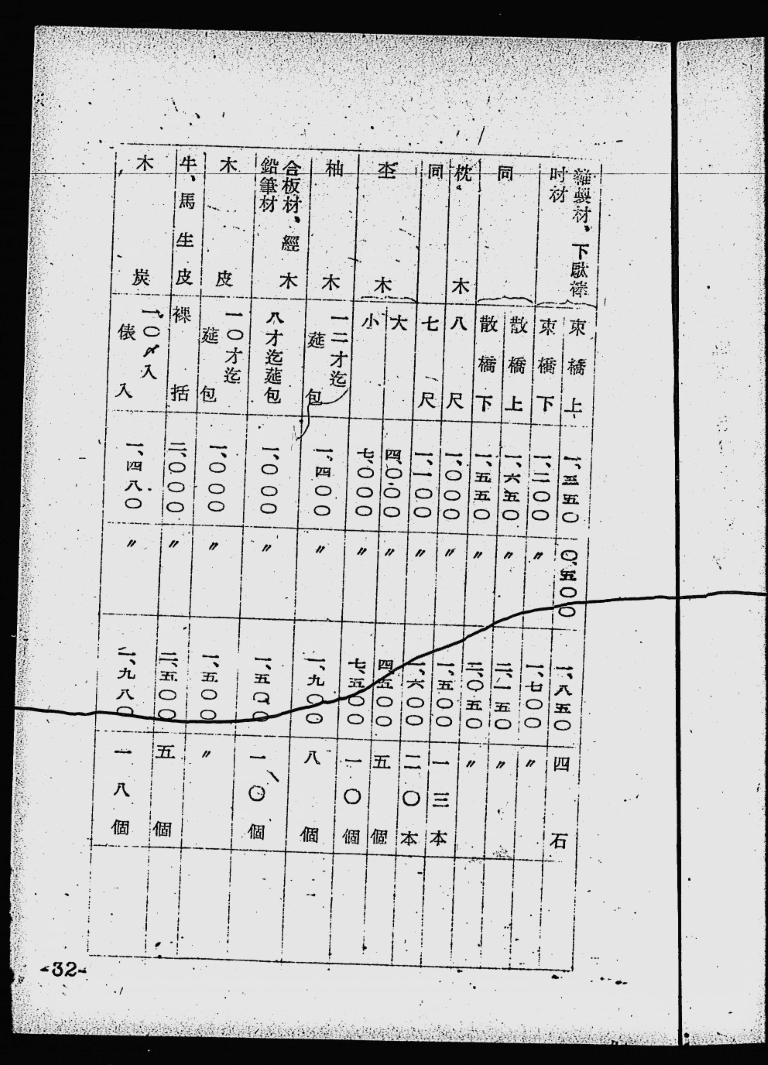 雜製材、下駄𣜜 束橋上 一、三五〇 〇、五〇〇 一、八五〇 四石
吋材 束橋下 一、二〇〇 〃 一、七〇〇 〃
同 散橋上 一、六五〇 〃 二、一五〇 〃
散橋下 一、五五〇 〃 二、〇五〇 〃
枕木 八尺 一、〇〇〇 〃 一、五〇〇 一三本
同 七尺 一、一〇〇 〃 一、六〇〇 二〇本
坔木 大 四、〇〇〇 〃 四、五〇〇 五個
小 七、〇〇〇 〃 七、五〇〇 一〇個
柚木 一二才迄 莚包 一、四〇〇 〃 一、九〇〇 八個
合板材、經木
鉛筆材 八才迄莚包 一、〇〇〇 〃 一、五〇〇 一〇個
木皮 一〇才迄 莚包 一、〇〇〇 〃 一、五〇〇 〃
牛、馬生皮 裸括 二、〇〇〇 〃 二、五〇〇 五個
木炭 一〇〆入 俵入 一、四八〇 〃 一、九八〇 一八個
-32-